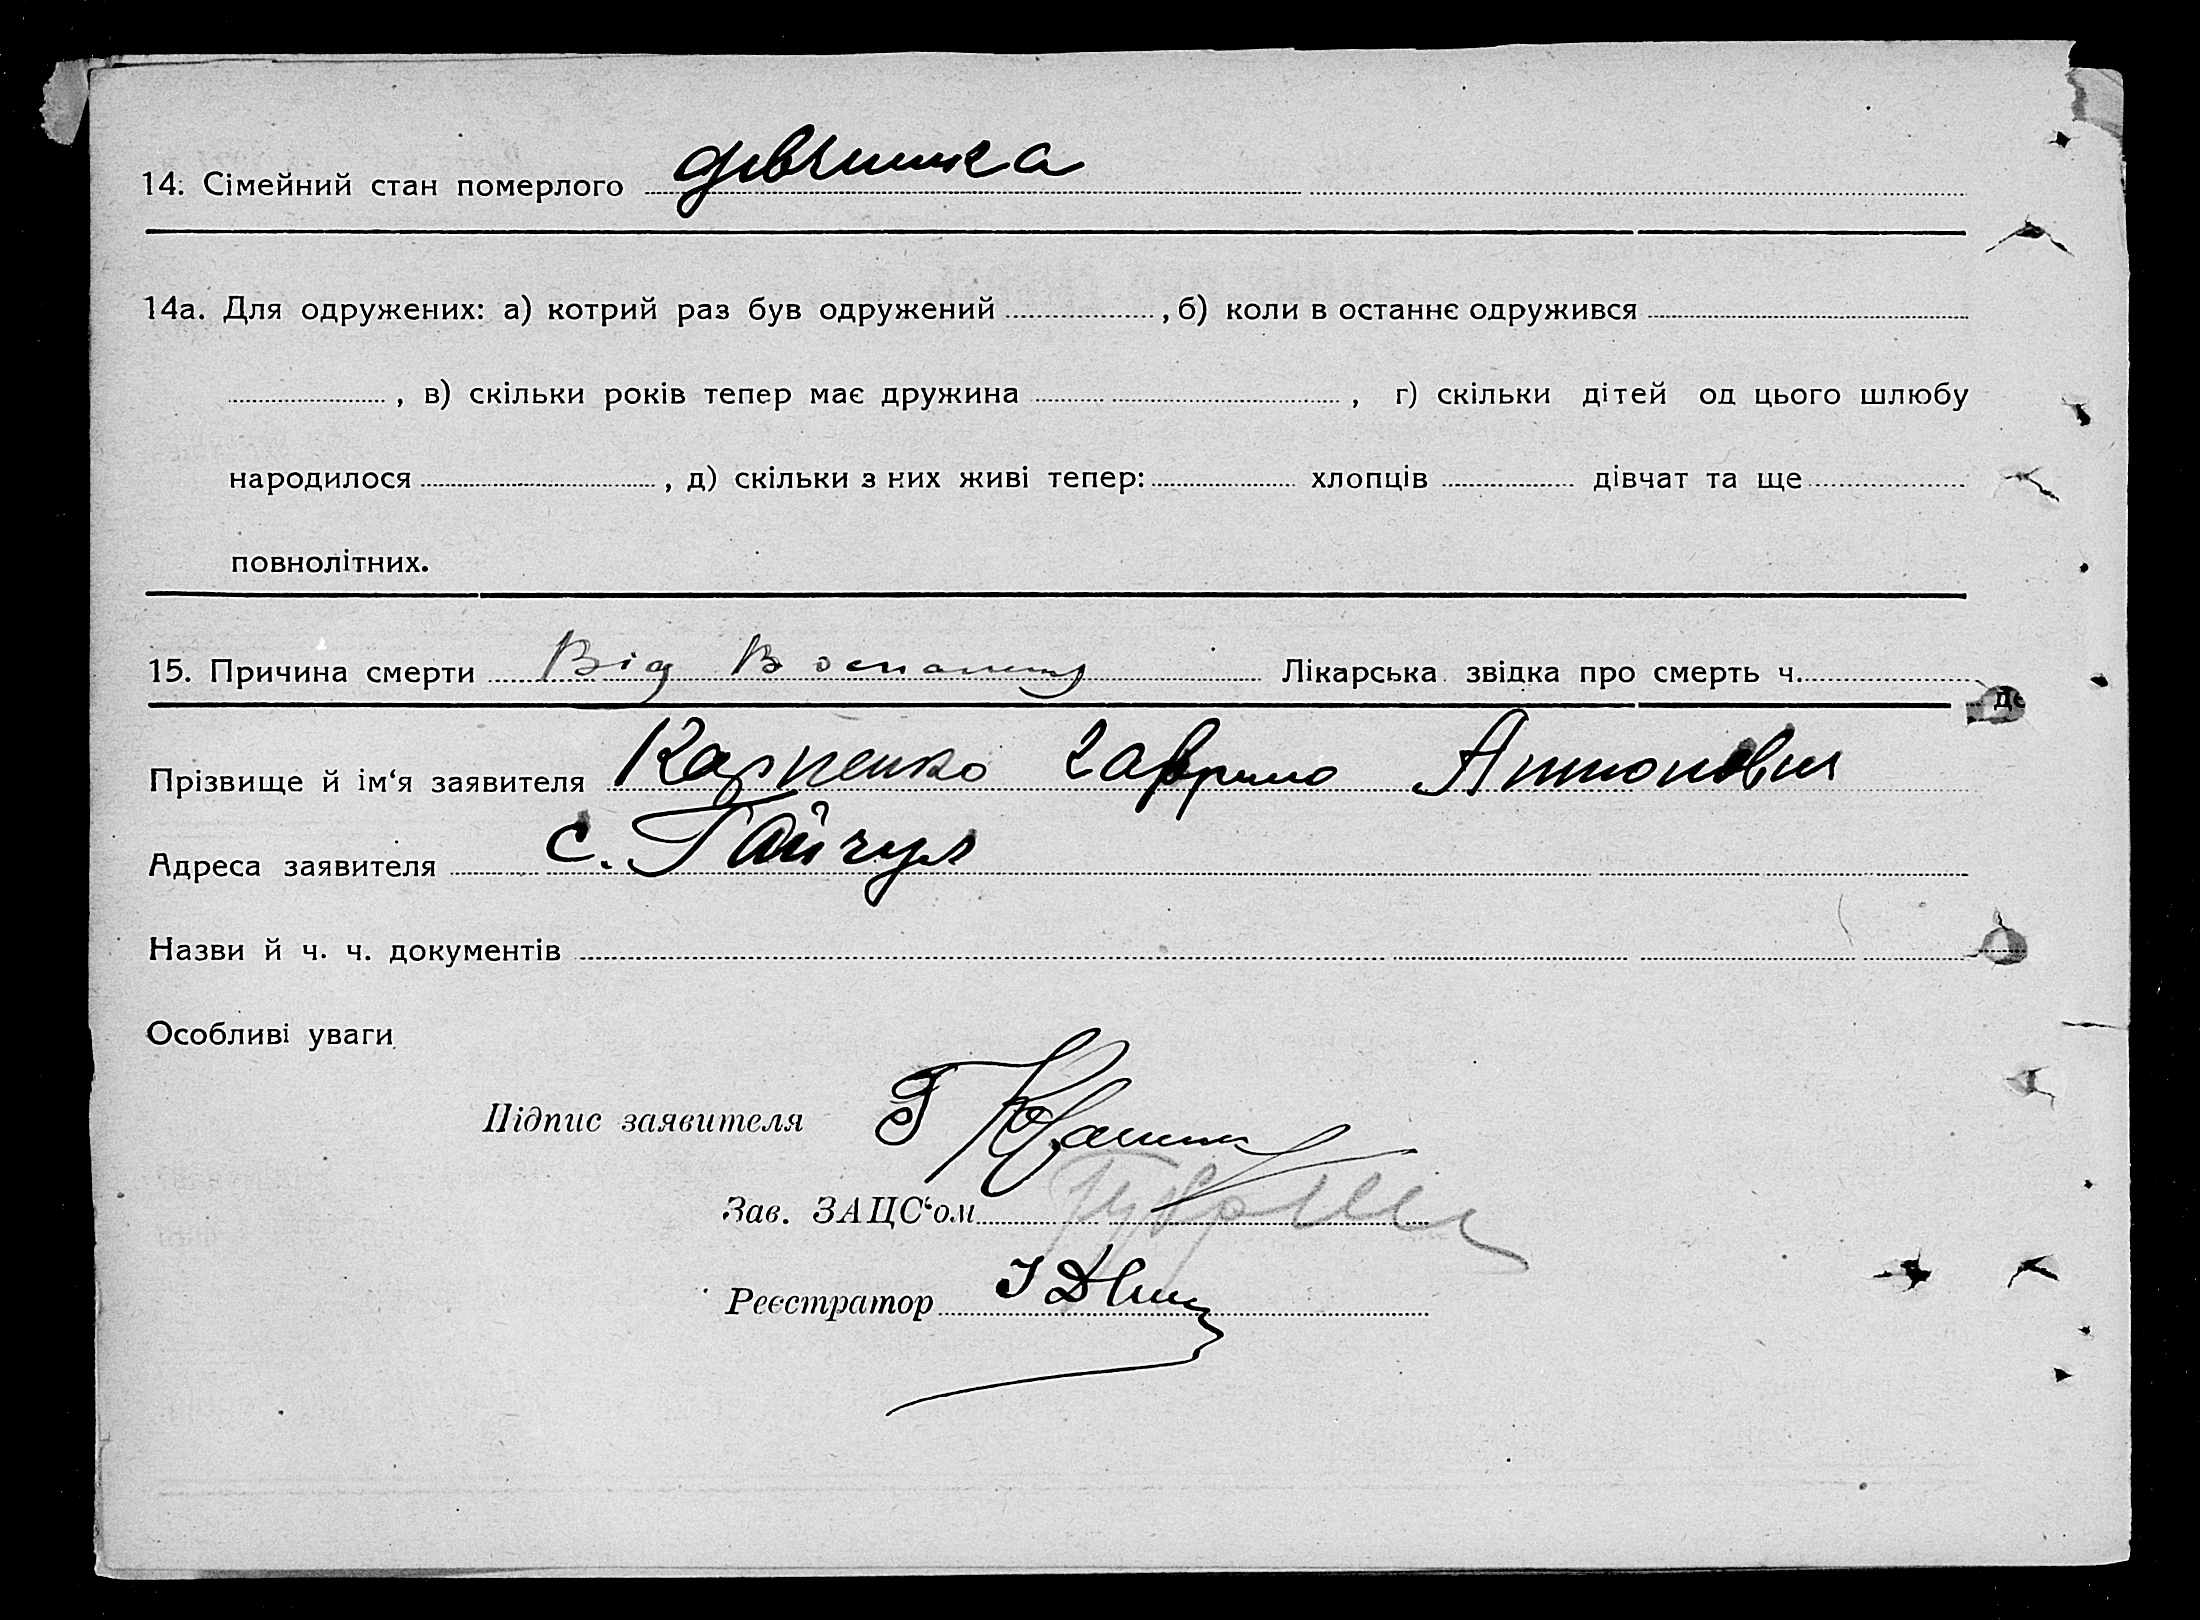 14. Сімейний стан померлого дівчинка
14а. Для одружених: а) котрий раз був одружений , б) коли в останнє одружився
, в) скільки років тепер має дружина , г) скільки дітей од цього шлюбу
народилося , д) скільки з них живі тепер: хлопців дівчат та ще
повнолітних.
15. Причина смерти Від Лікарська звідка про смерть ч.
Де
Прізвище й ім‘я заявителя Карпенко Гаврило Антонович
Адреса заявителя с. Гайчул
Назви й ч. ч. документів
Особливі уваги
Підпис заявителя Г
Зав. ЗАЦС‘ом
Реєстратор